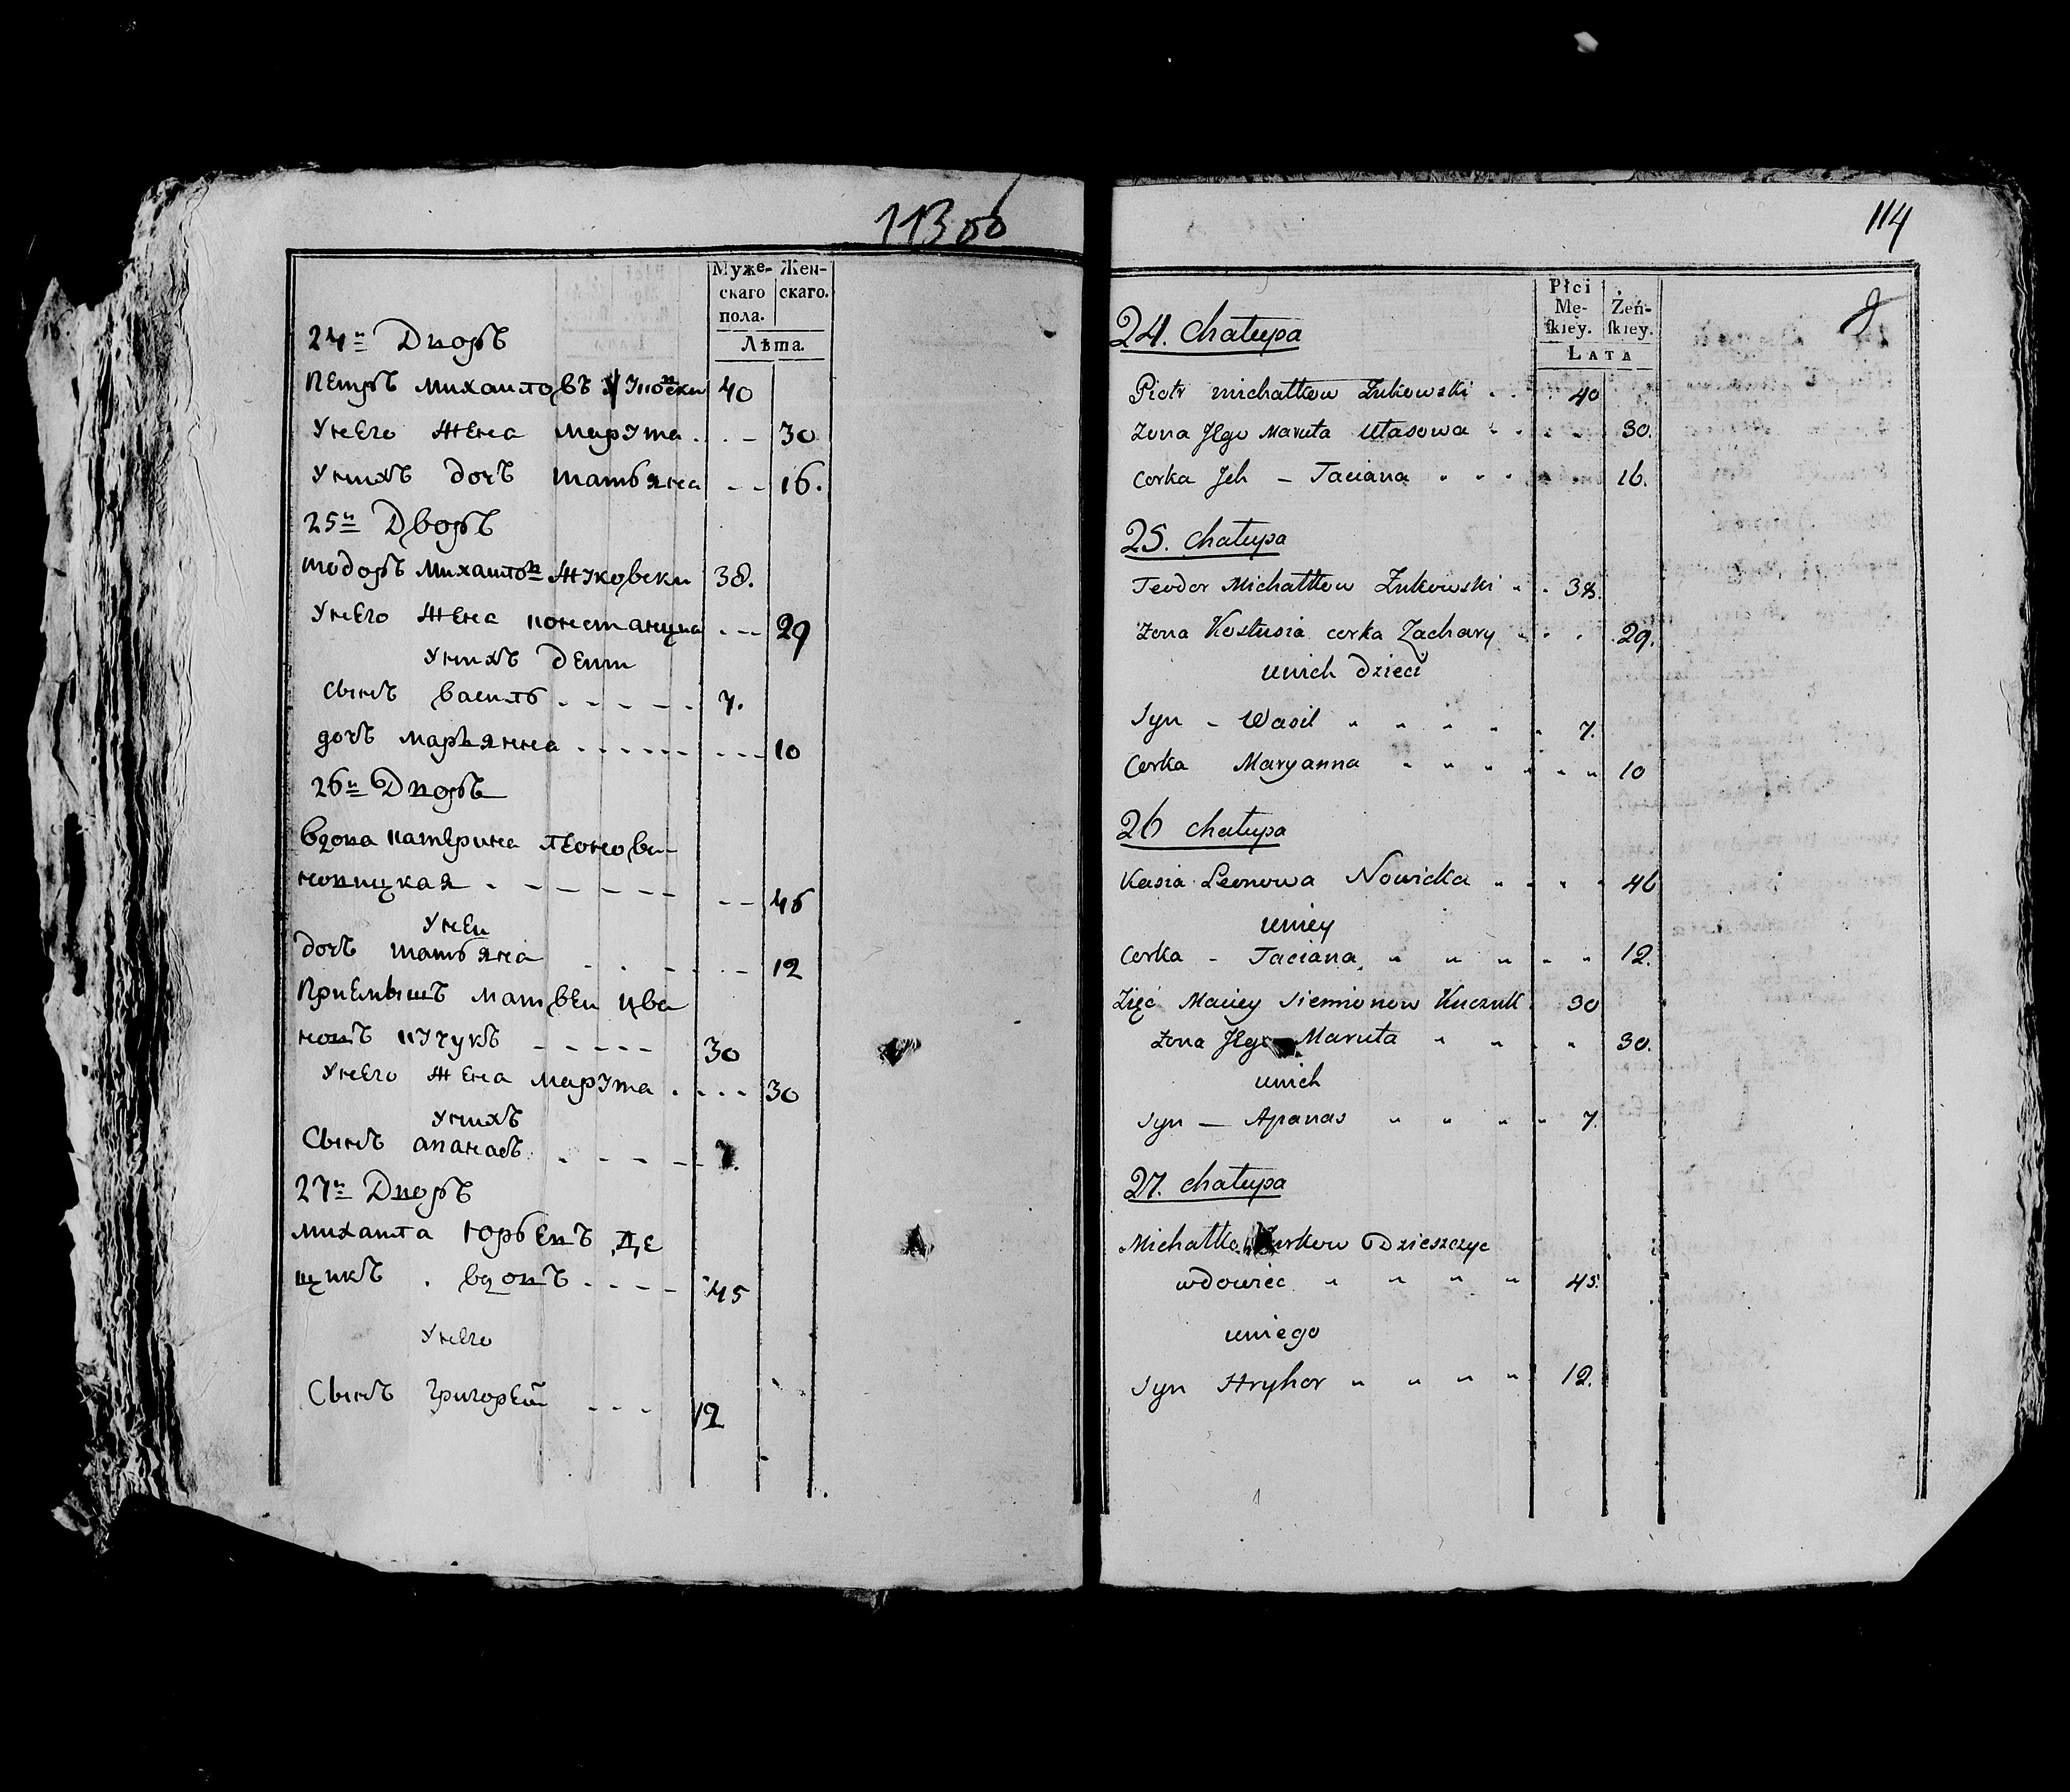 113 об
Муже- Жен-
скаго скаго.
пола.
Лѣта.
24й Дворъ
Петръ михаиловъ Жуковски 40
Унего жена марута . . – 30
Унихъ дочъ татьяна – – 16.
25й Дворъ
тодоръ михаиловъ Жуковски 38.
Унего жена констанциа . – – 29
Унихъ дети
Сынъ василь . – – – – – 7.
дочъ марьянна . . . . . . – – – 10
26й Дворъ
вдова катерина леонова
новицкая . – – – – – – – 46
Унеи
дочъ татьяна . . – . – 12
Приемышъ матвеи ива
новъ кучукъ – – – – – 30
Унего жена марута . . – – – 30
Унихъ
Сынъ апанасъ . – – – – – 7.
27й Дворъ
михаила юрьевъ де
щикъ . вдовъ . – – – – 45
Унего
Сынъ григорей – – – 12
114
Płci
Mę- Żeń-
skiey. skiey.
Lata
24. chałupa
Piotr michałkow Żukowski . . 40
żona Jego Maruta Ułasowa " . . . . 30.
Corka Jch – Taciana " " " 16.
25. chałupa
Teodor Michałkow Żukowski " . 38.
żona Kostusia corka Zachary " . . 29.
unich dzieci
Syn – Wasil " " " " " " 7.
Corka Maryanna " " " " " " 10
26 chałupa
Kasia Leonowa Nowicka " " " " 46
uniey
Corka – Taciana " " " " " 12.
Zięć Maciey Siemionow Kuczuk 30
żona Jego Maruta " " " " 30.
unich
Syn – Apanas " " " " 7.
27. chałupa
Michałko Jurkow Dzieszczyc
wdowiec " " " " 45.
uniego
Syn Hryhor " " " " 12.